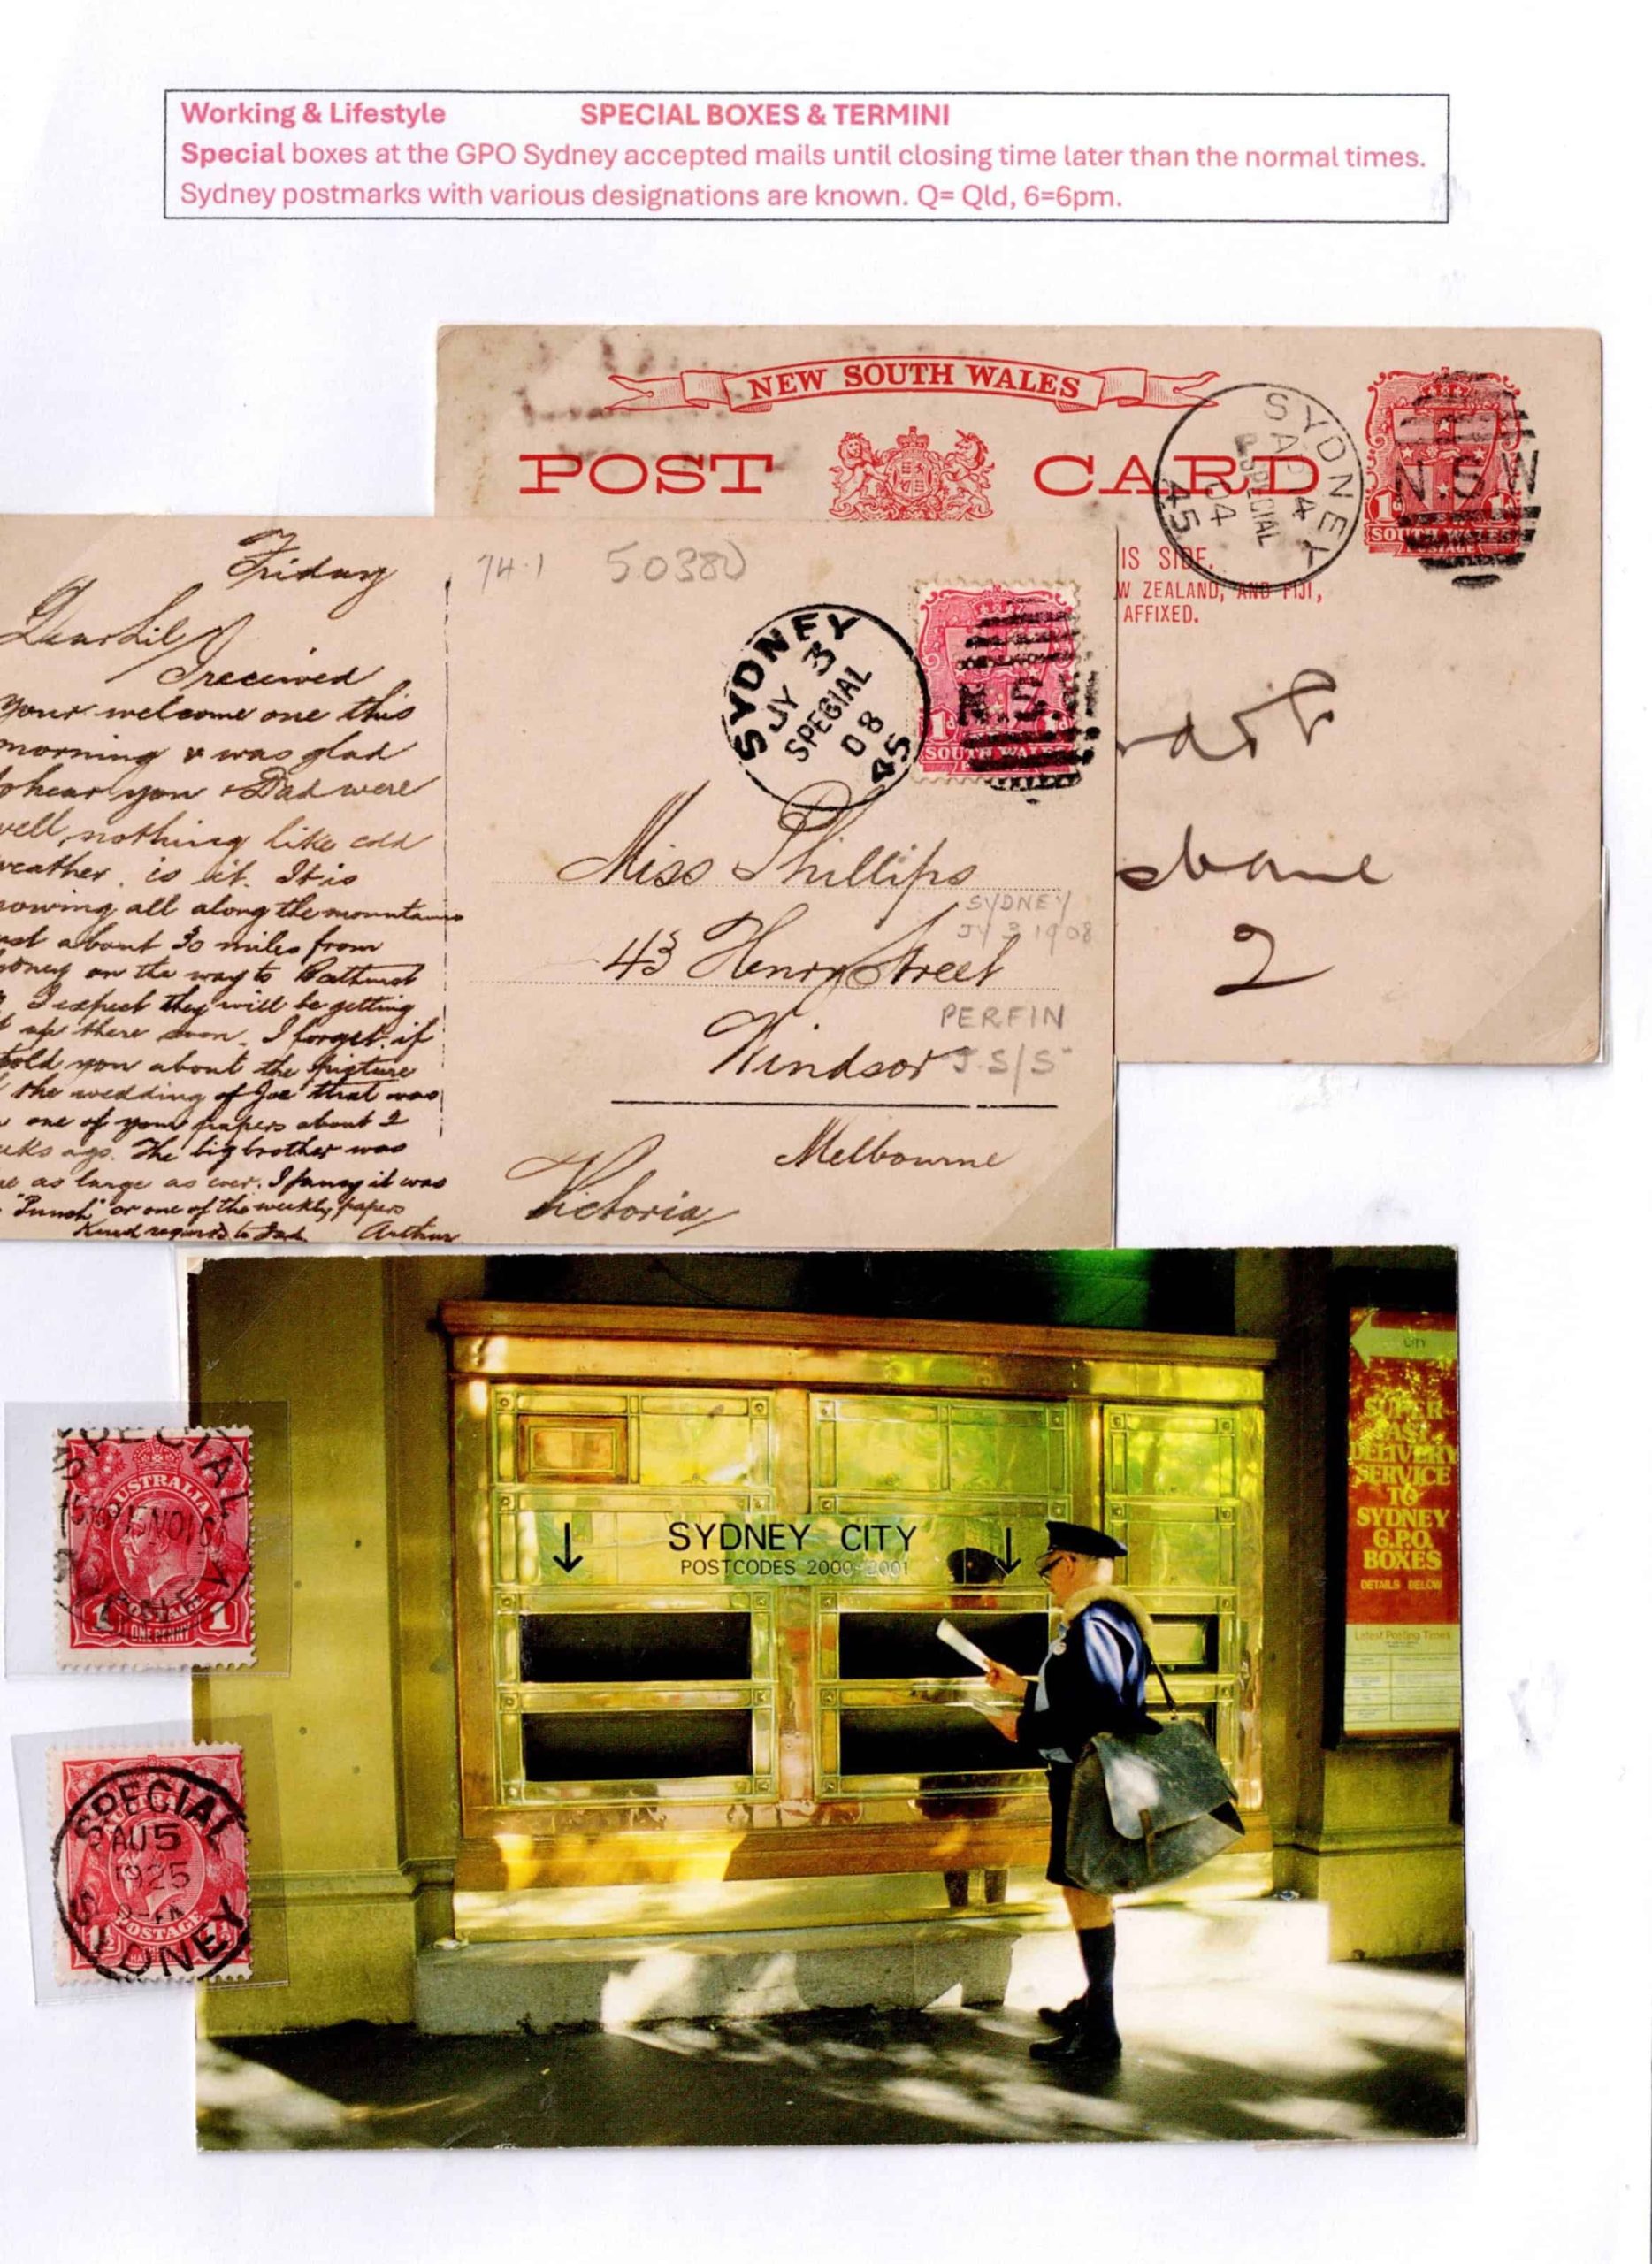 Working & Lifestyle SPECIAL BOXES & TERMINI
Special boxes at the GPO Sydney accepted mails until closing time later than the normal times.
Sydney postmarks with various designations are known. Q= Qld, 6=6pm.
NEW SOUTH WALES
POST CARD
SYDNEY
AP 4
SPECIAL
04
45
N.S.W
SOUTH WALES
IS SIDE.
W ZEALAND, AND FIJI,
AFFIXED.
2
Friday
Dear Lil
I received
your welcome one this
morning & was glad
hear you & Dad were
well, nothing like cold
weather, is it. It is
all along the mountains
about 30 miles from
on the way to Bathurst
I expect they will be getting
up there soon. I forget if
told you about the picture
the wedding of Joe that was
one of your papers about 2
ago. The big brother was
as large as ever. I fancy it was
"Punch" or one of the weekly papers
Kind regards to Dad. Arthur
74.1 50380
SYDNEY
JY 3
SPECIAL
08
45
N.S.
1d
SOUTH WALES
Miss Phillips
SYDNEY
JY 3 1908
43 Henry Street
PERFIN
Windsor J.S/S
Melbourne
Victoria
SPECIAL
AUSTRALIA
ONE PENNY
SPECIAL
AU 5
1925
POSTAGE
SYDNEY CITY
POSTCODES 2000-2001
CITY
SUPER
FAST
DELIVERY
SERVICE
TO
SYDNEY
G.P.O.
BOXES
DETAILS BELOW
Latest Posting Times